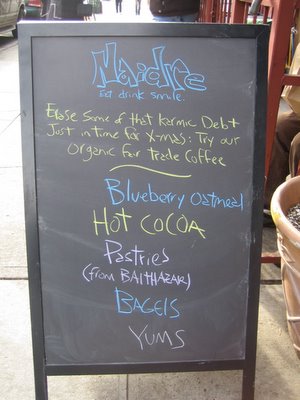 Naidre
Eat drink smile.
Erase some of that karmic Debt
Just in time for X-mas: Try our
Organic Fair Trade Coffee
Blueberry Oatmeal
HOT COCOA
Pastries
(from BALTHAZAR)
BAGELS
YUMS